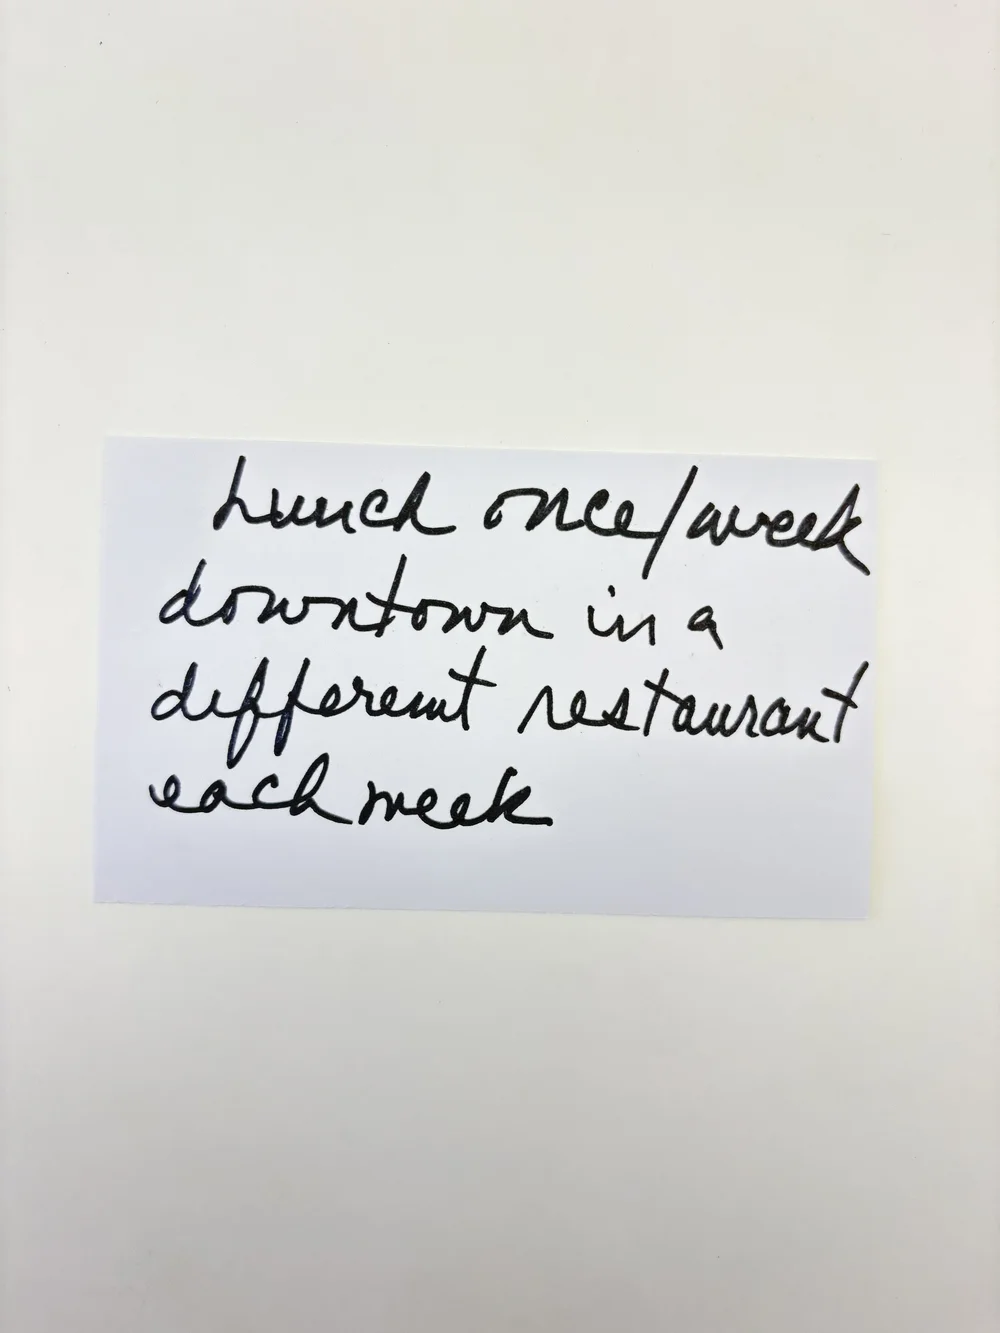 Lunch once/week
downtown in a
different restaurant
each week